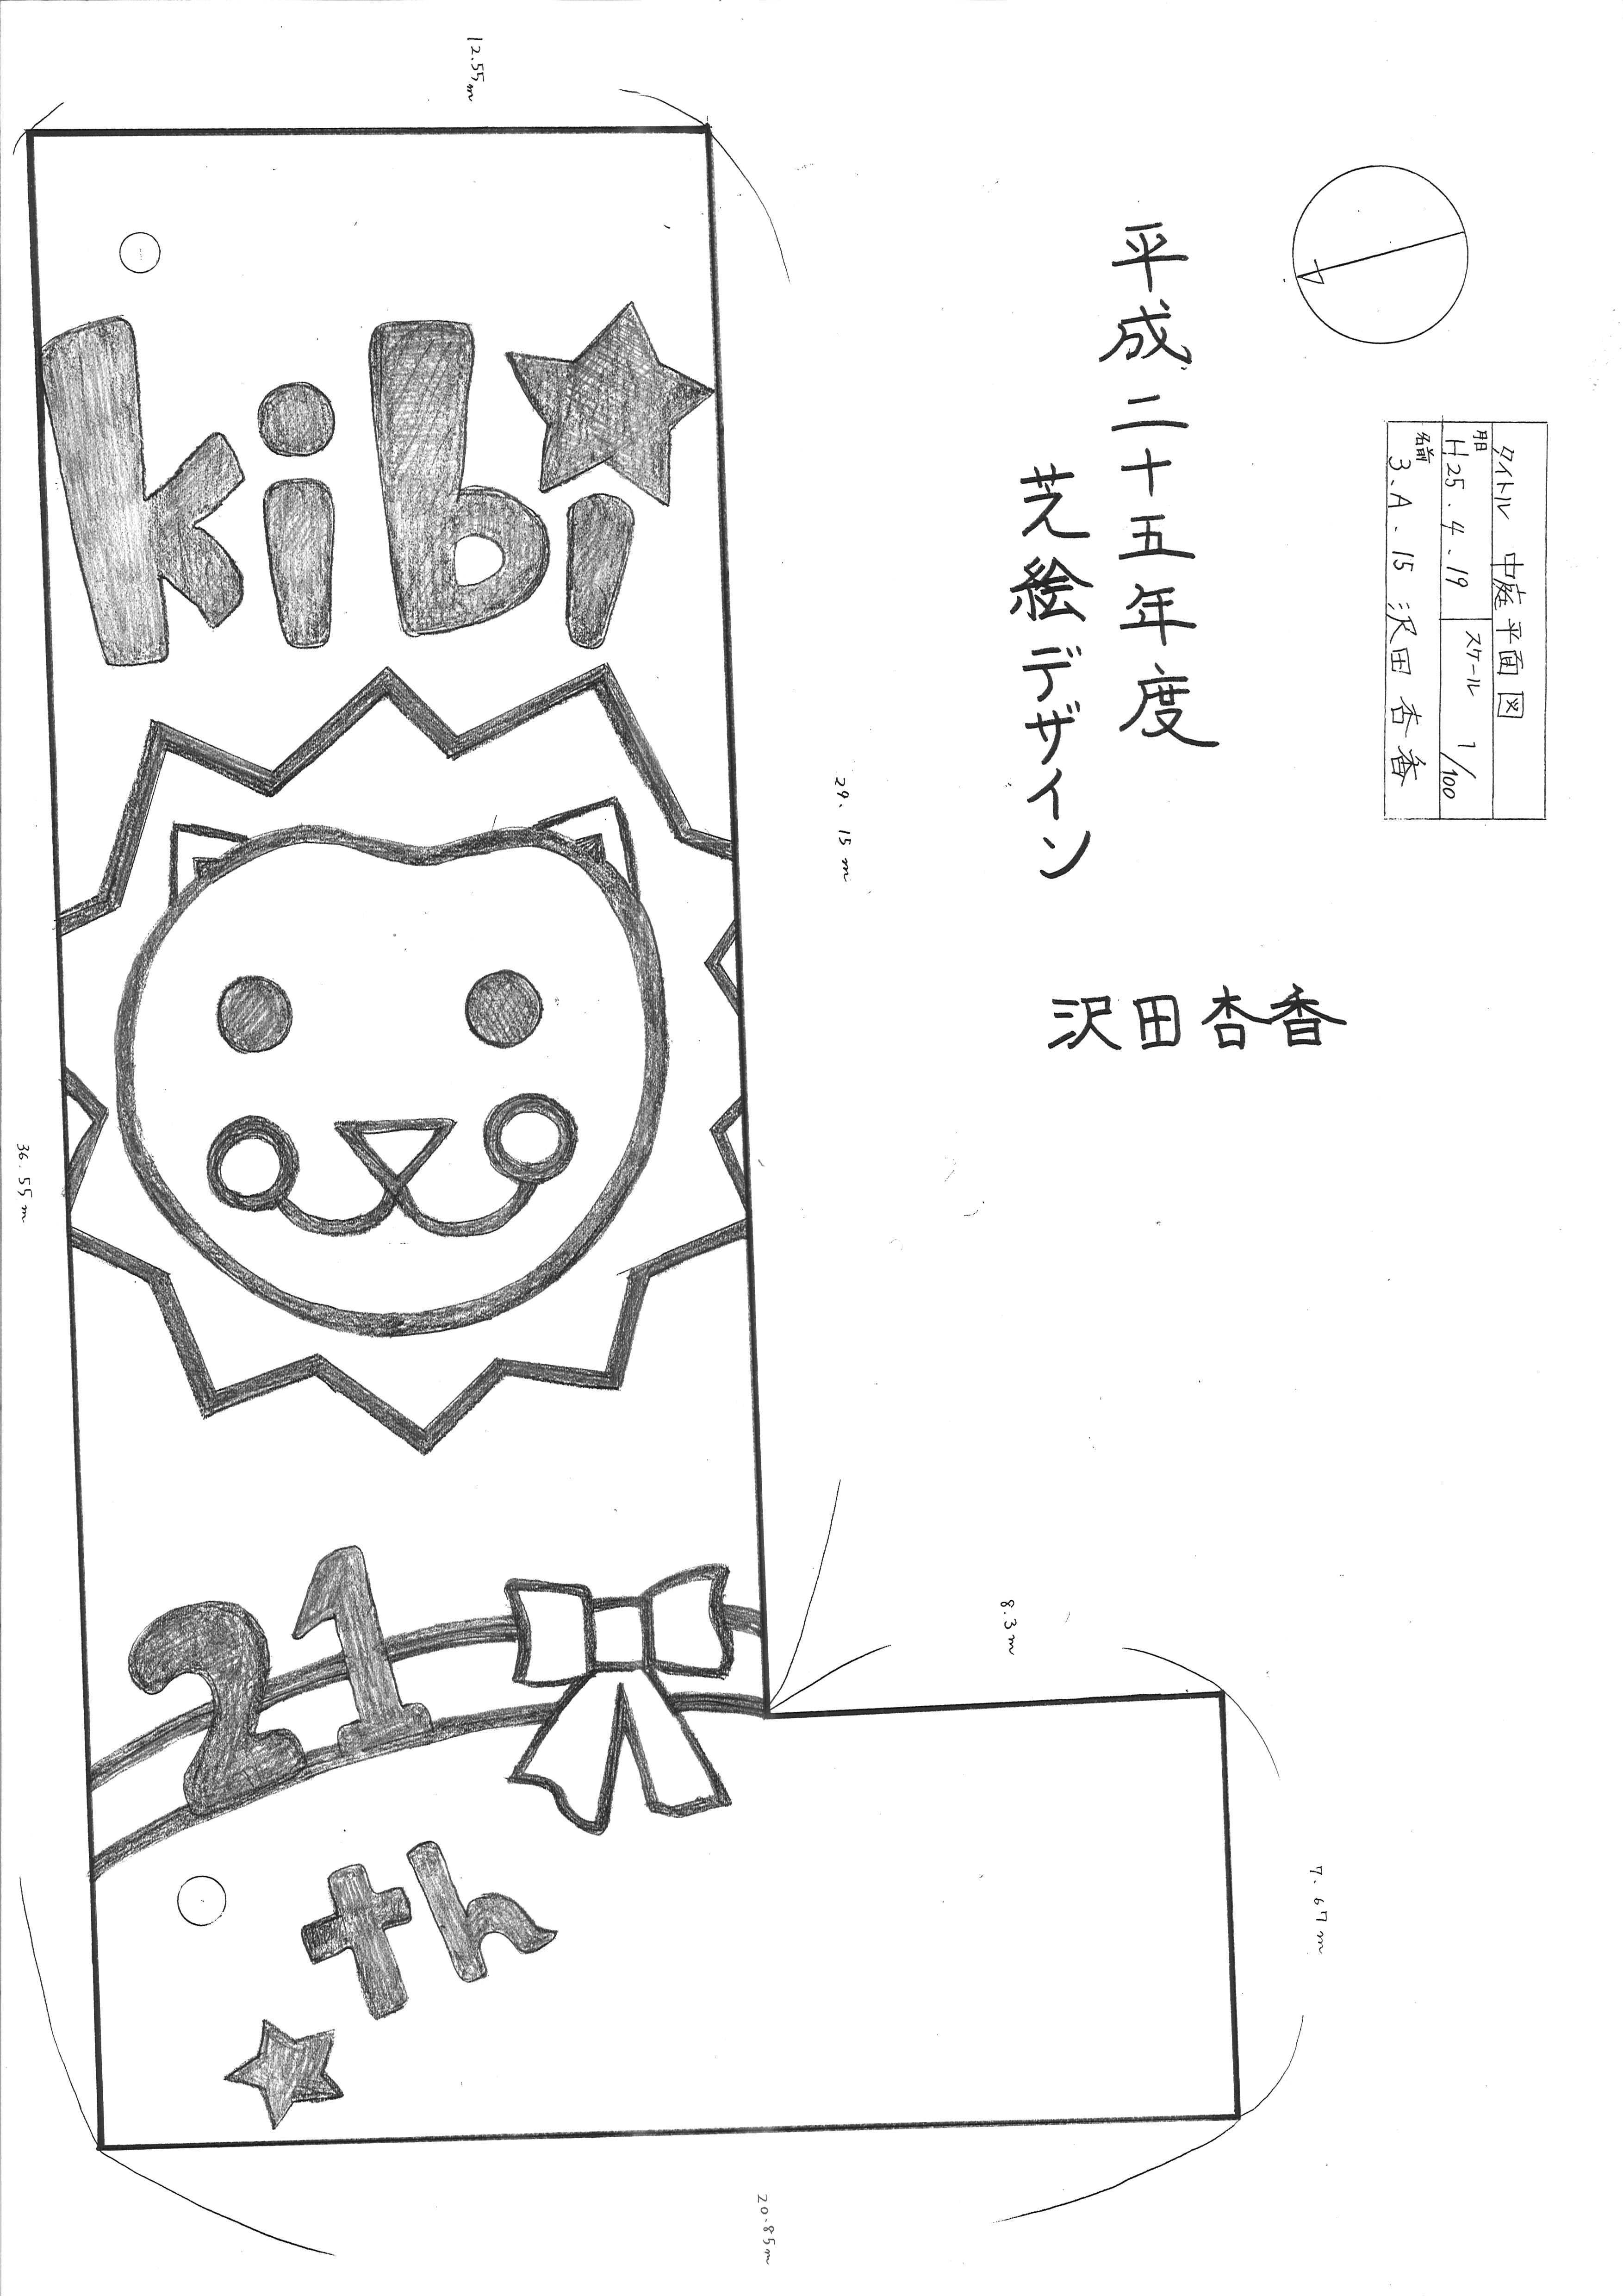 タイトル 中庭平面図
月日 H25.4.19
スケール 1/100
名前 3.A.15 沢田 杏香
平成二十五年度
芝絵デザイン
沢田杏香
12.55m
kibi
29.15m
36.55m
21
th
8.3m
7.67m
20.85m